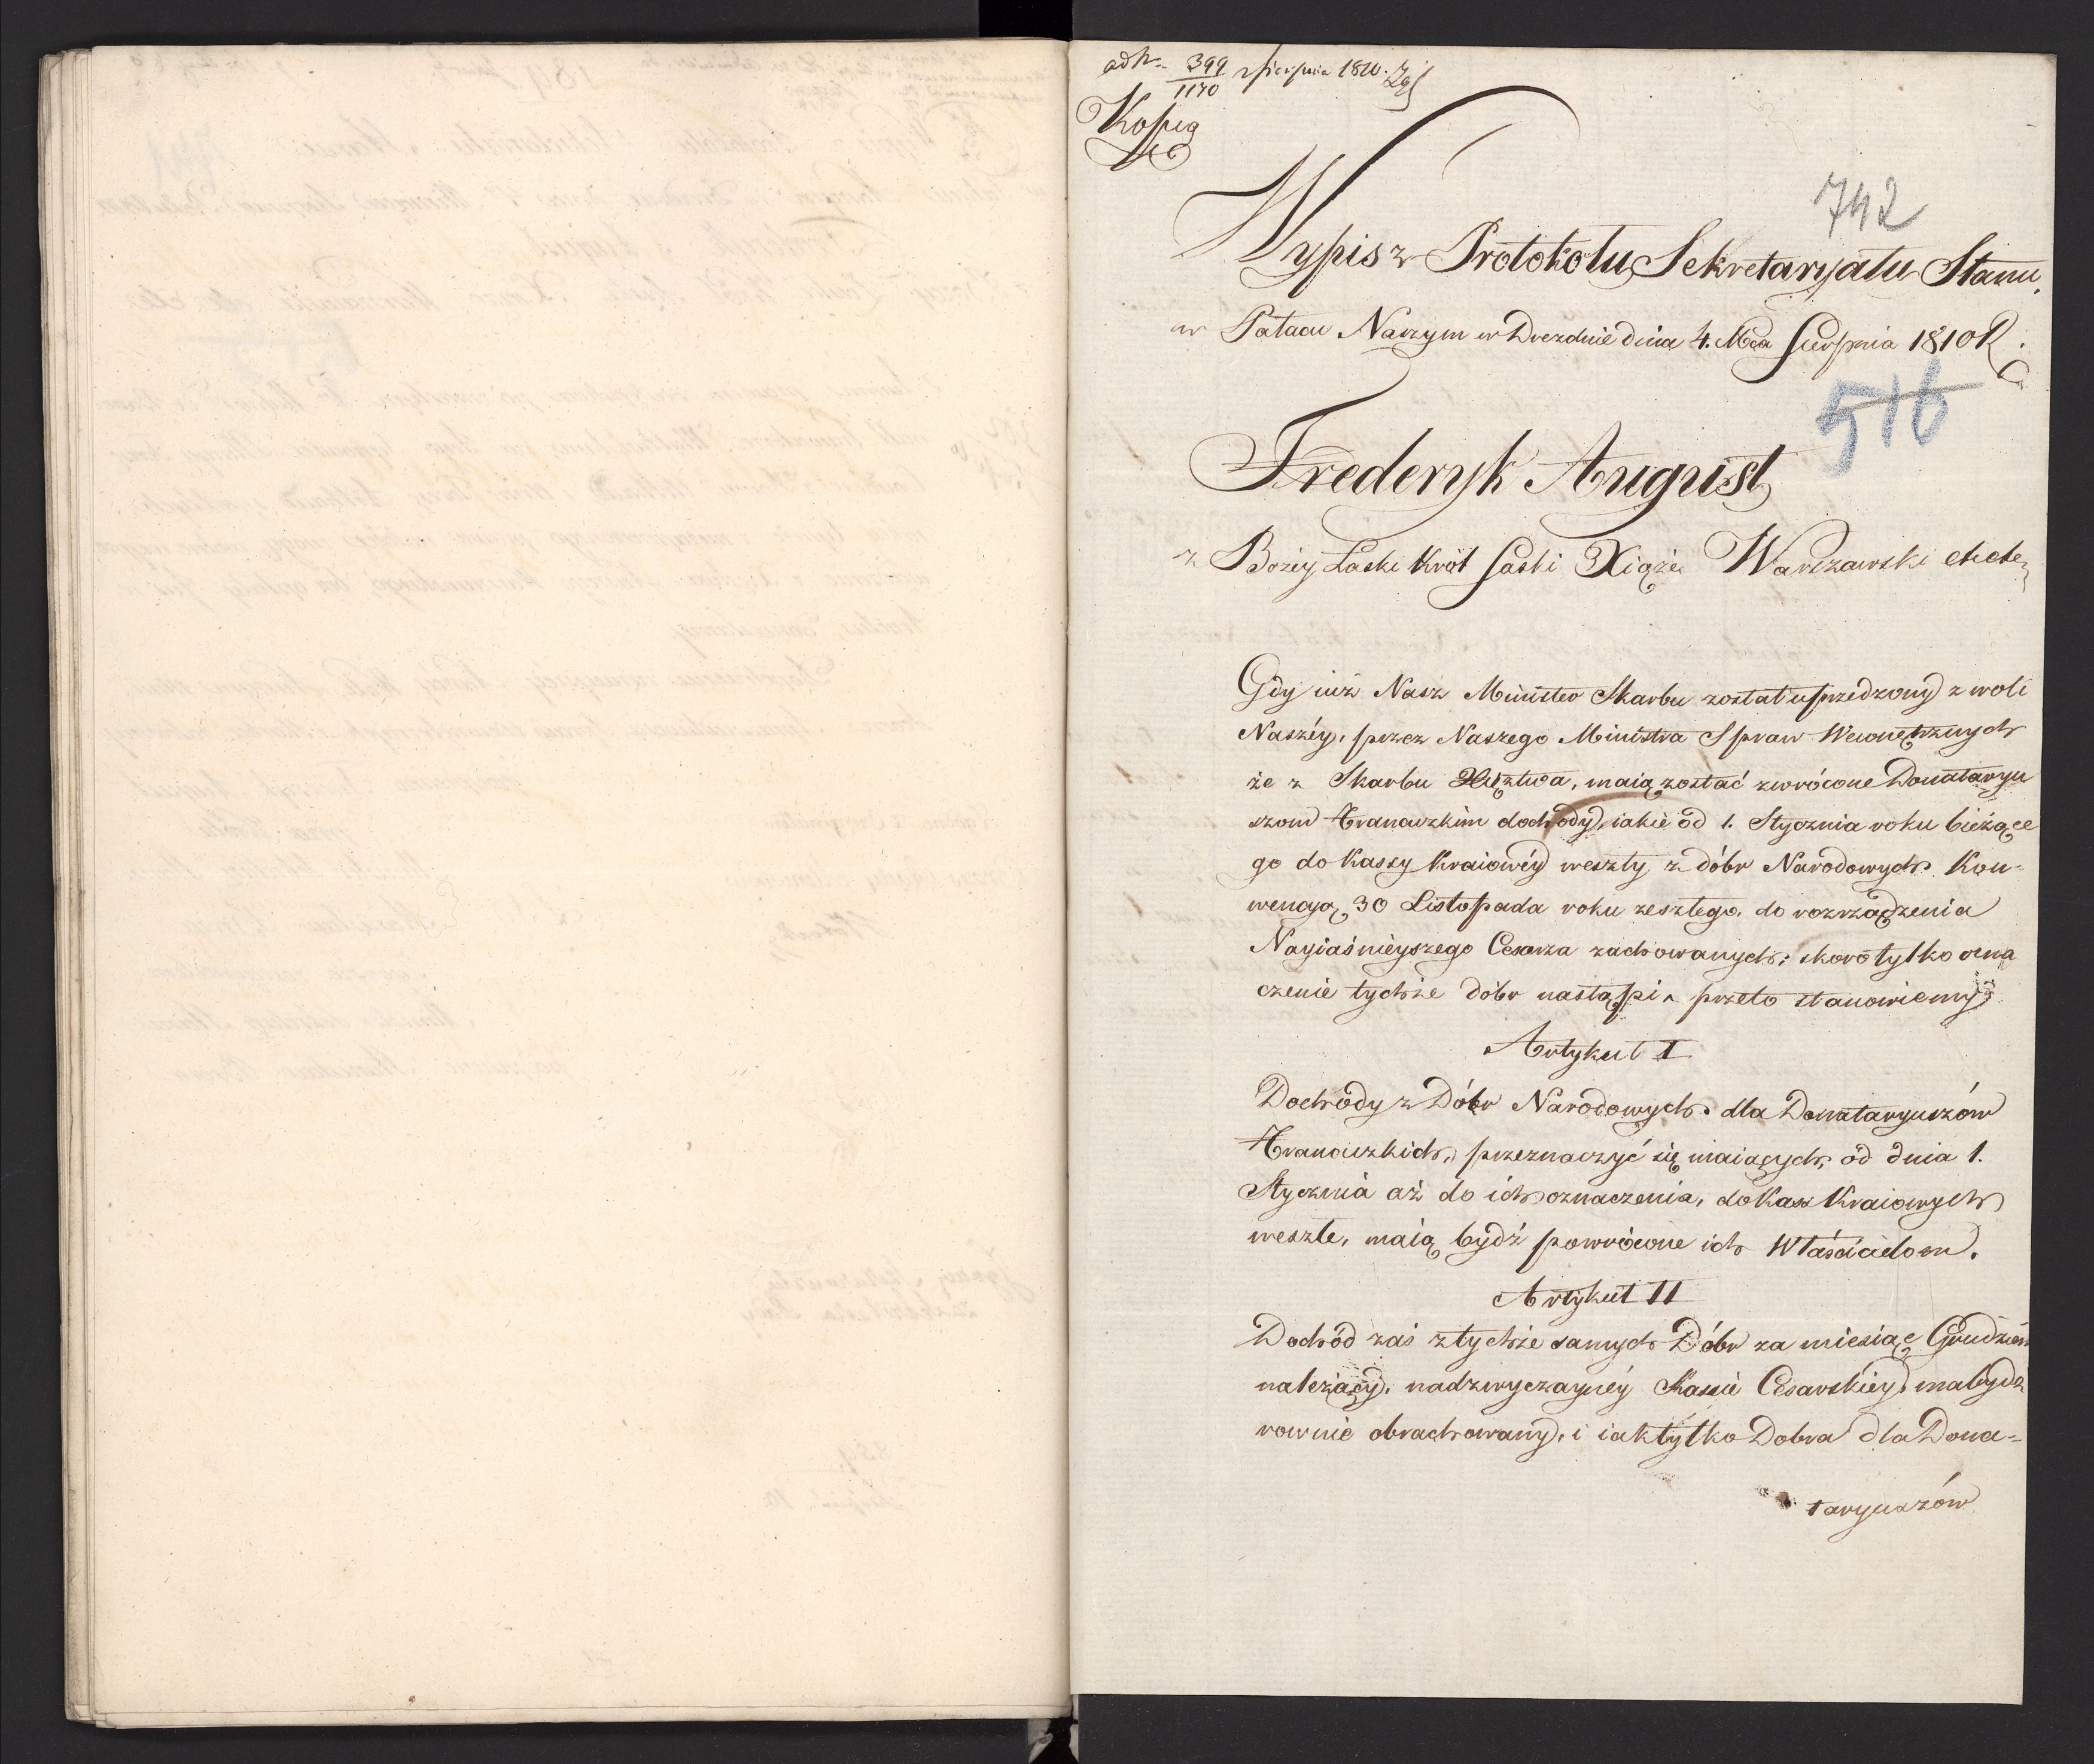 ad N. 399 Sierpnia 1810.
1170
Kopia
742
Wypis z Protokołu Sekretaryatu Stanu.
w Pałacu Naszym w Dreznie dnia 4. Mca Sierpnia 1810 R.
516
Frederyk August
z Bożey Łaski Król Saski Xiąże Warszawski etc etc
Gdy iuż Nasz Minister Skarbu został uprzedzony z woli
Naszéy, przez Naszego Ministra Spraw Wewnętrznych
że z Skarbu Xięztwa, maią zostać zwrócone Donataryu
szom Francuzkim dochody, iakie od 1. Stycznia roku bieżące
go do Kassy Kraiowéy weszły z dóbr Narodowych Kon-
wencyą 30 Listopada roku zeszłego, do rozrządzenia
Nayiaśnieyszego Cesarza zachowanych; skoro tylko ozna
czenie tychże dóbr nastąpi, przeto stanowiemy
Artykuł I
Dochody z Dóbr Narodowych dla Donataryuszów
Francuzkich, przeznaczyć się maiących, od dnia 1.
Stycznia aż do ich oznaczenia, do Kass Kraiowych
weszłe, maią bydź powrócone ich Właścicielom.
Artykuł II
Dochód zaś z tychże samych Dóbr za miesiąc Grudzień
należący, nadzwyczaynéy Kassie Cesarskiéy, ma bydź
rownie obrachowany, i iak tylko Dobra dla Dona=
taryuszów